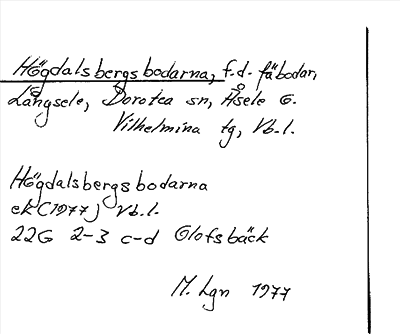 Högdalsbergsbodarna, f.d. fäbodar,
Långsele, Dorotea sn, Åsele G.
Vilhelmina tg, Vb.l.
Högdalsbergsbodarna
ek (1977) Vb.l.
22G 2-3 c-d Olofsbäck
M. Lgn 1977